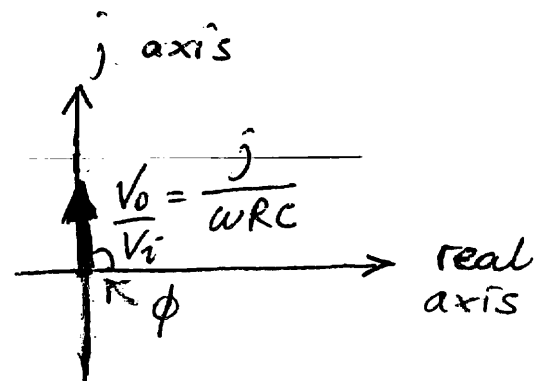 j axis
V₀/Vᵢ = j/ωRC
real
axis
ϕ